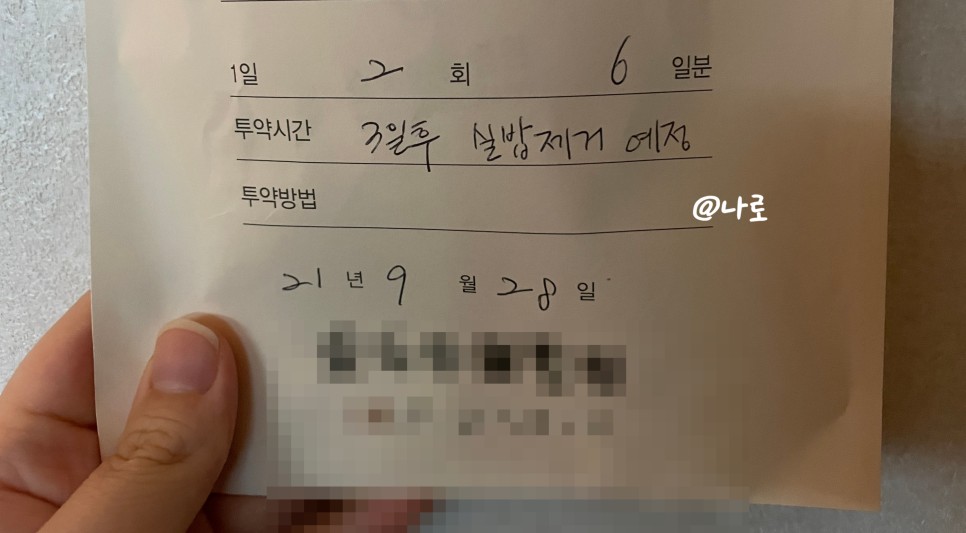 1일 2 회 6 일분
투약시간 3일후 실밥제거 예정
투약방법
@나로
21 년 9 월 28 일